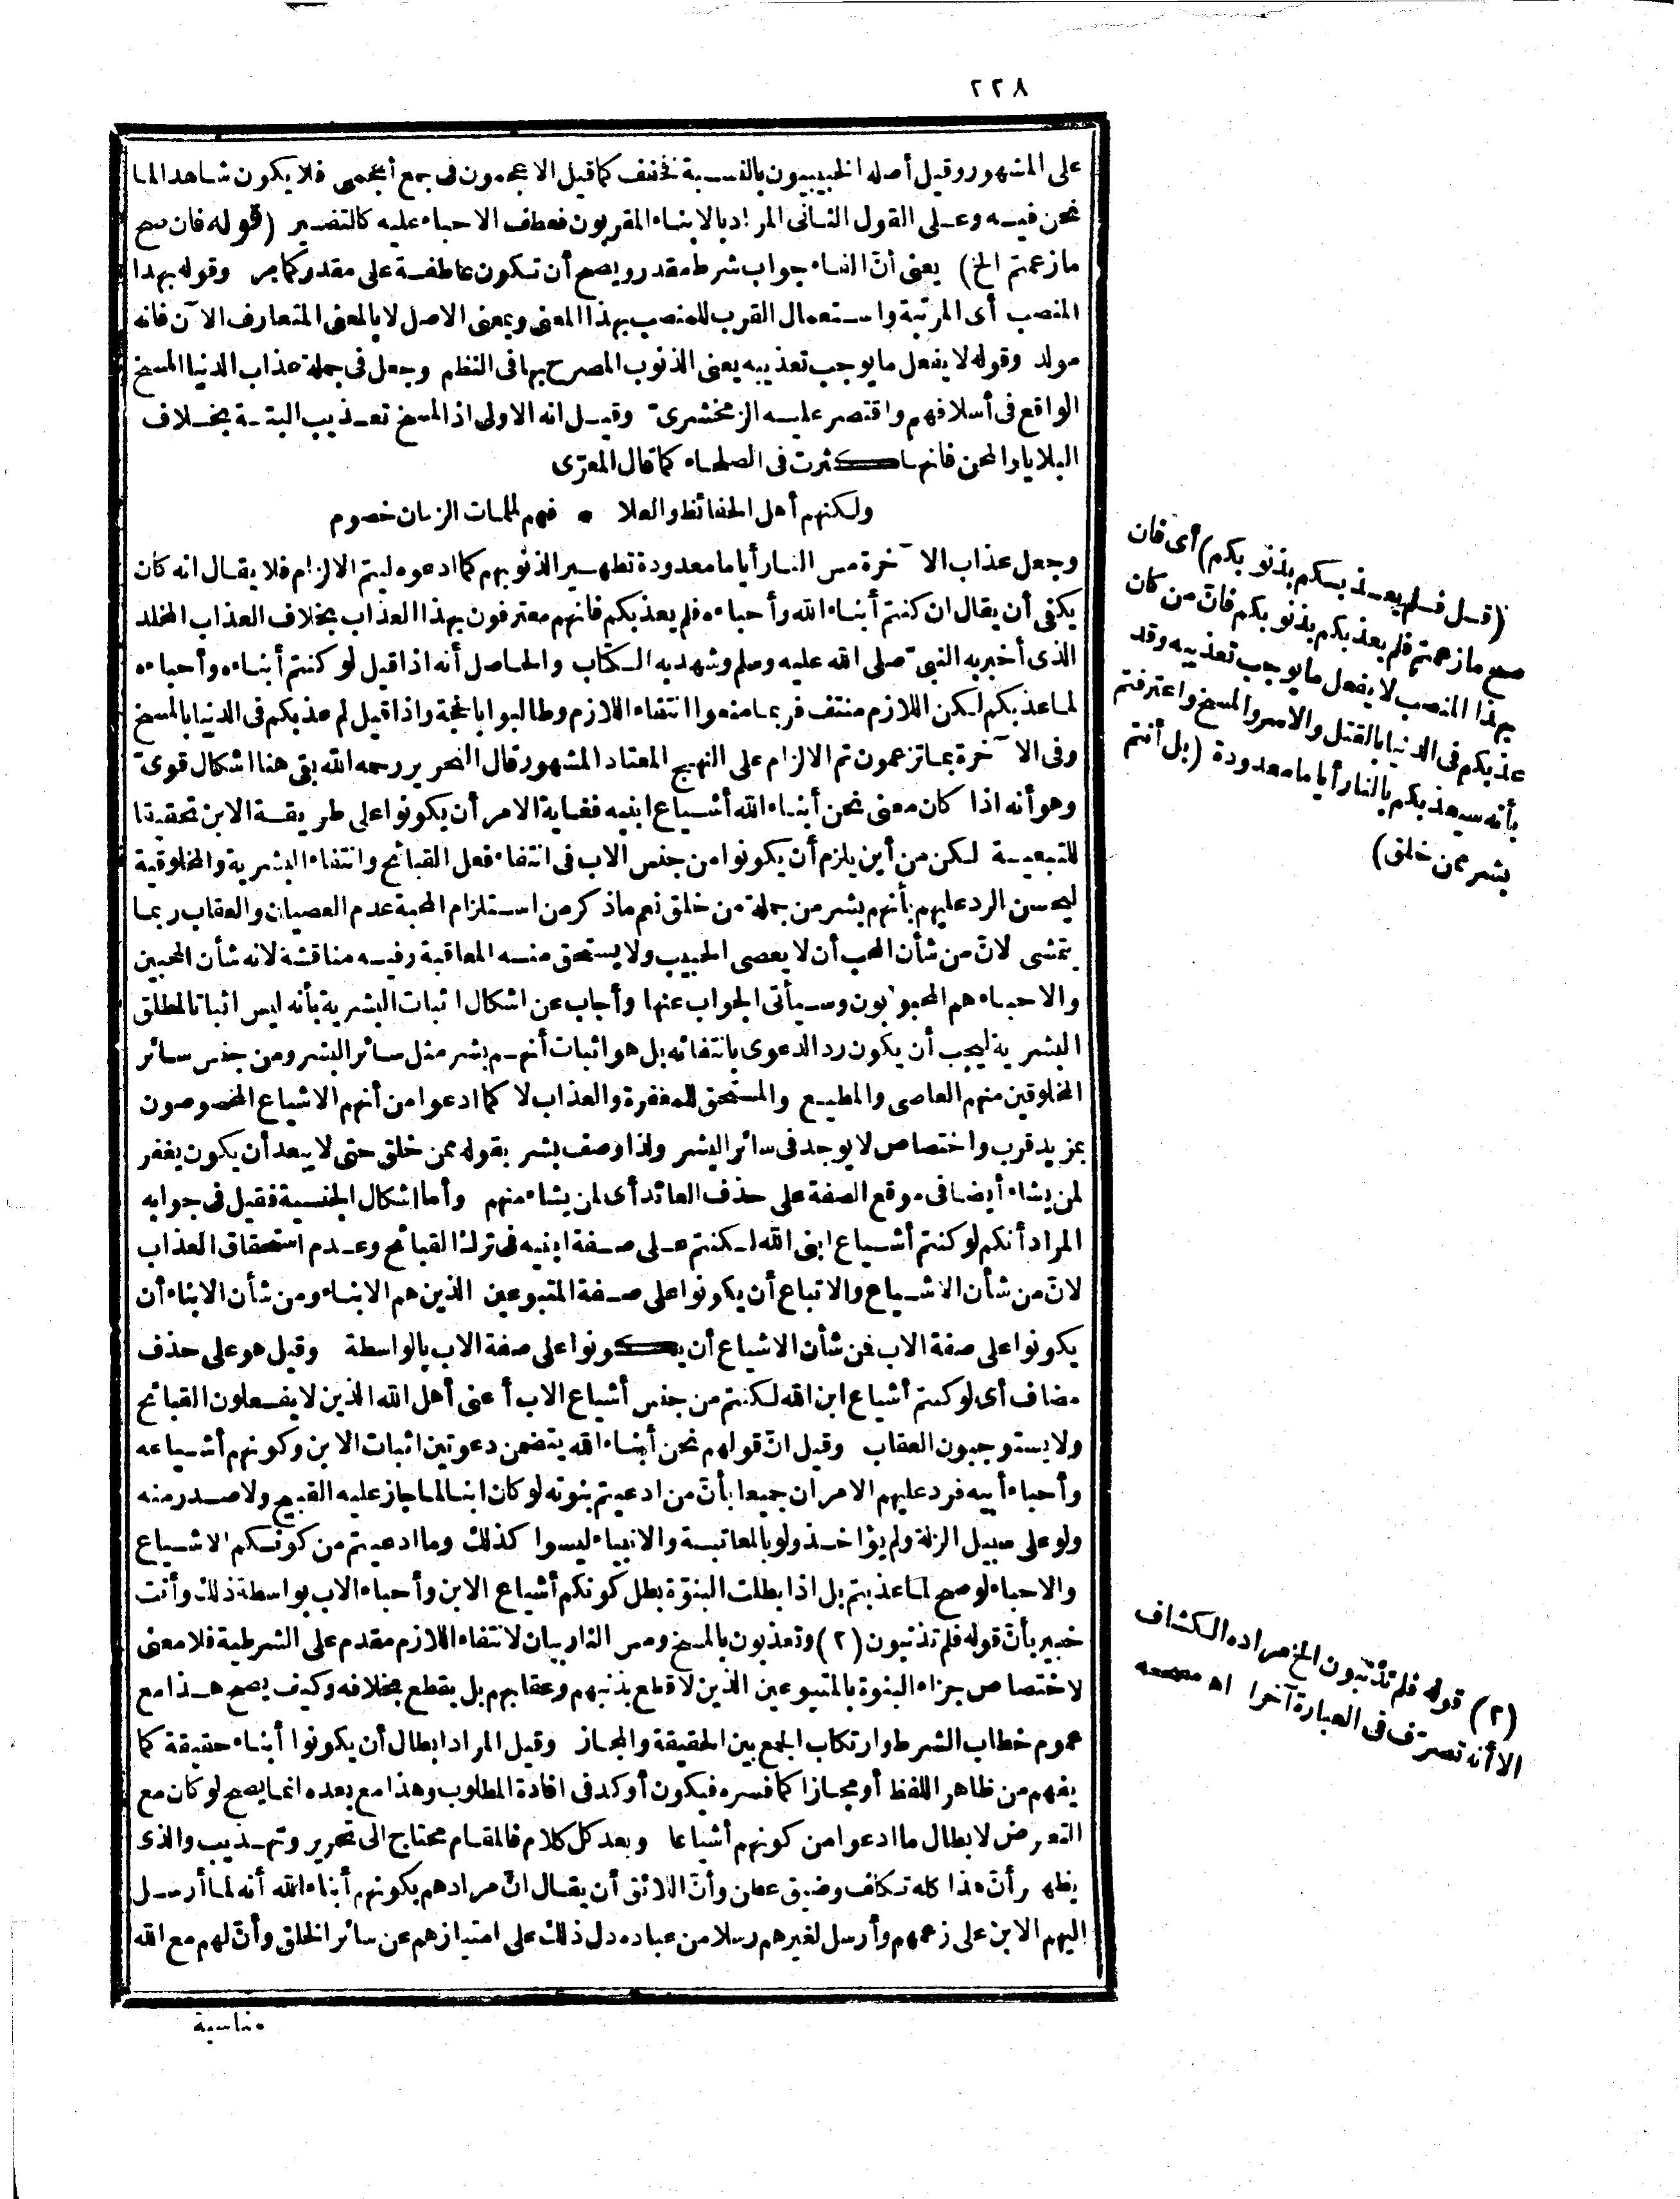 ٢٢٨
على المشهور وقيل أصله الخبيبيون بالنسبة فخفف كما قيل الاعجمون فى جمع أعجمى فلا يكون شاهد الما
نحن فيه وعلى القول الثانى المراد بالابناء المقربون فعطف الاحباء عليه كالتفسير (قوله فان صح
ما زعمتم الخ) يعنى أنّ الفاء جواب شرط مقدر ويصح أن تكون عاطفة على مقدر كما مر وقوله بهذا
المنصب أى المرتبة واستعمال القرب للمنصب بهذا المعنى وبمعنى الاصل لا بالمعنى المتعارف الآن فانه
مولد وقوله لا يفعل ما يوجب تعذيبه يعنى الذنوب المصرح بها فى النظم وجعل فى جملة عذاب الدنيا المسخ
الواقع فى أسلافهم واقتصر عليه الزمخشرىّ وقيل انه الاولى اذ المسخ تعذيب البتة بخلاف
البلايا والمحن فانها كثرت فى الصلحاء كما قال المعرّى
ولكنهم أهل الحفائظ والعلا • فهم لملمات الزمان خصوم
وجعل عذاب الآخرة مس النار أياما معدودة تطهيرا لذنوبهم كما ادعوه ليتم الالزام فلا يقال انه كان
يكفى أن يقال ان كنتم أبناء الله وأحباءه فلم يعذبكم فانهم معترفون بهذا العذاب بخلاف العذاب المخلد
الذى أخبر به النبىّ صلى الله عليه وسلم وشهد به الكتاب والحاصل أنه اذا قيل لو كنتم أبناءه وأحباءه
لما عذبكم لكن اللازم منتف فربما منعوا انتفاء اللازم وطالبوا بالحجة واذا قيل لم عذبكم فى الدنيا بالمسخ
وفى الآخرة بما تزعمون تم الالزام على النهج المعتاد المشهور قال النحرير رحمه الله بقى هنا اشكال قوىّ
وهو أنه اذا كان معنى نحن أبناء الله أشياع ابنيه فغاية الامر أن يكونوا على طريقة الابن تحقيقا
للتبعية لكن من أين يلزم أن يكونوا من جنس الاب فى انتفاء فعل القبائح وانتفاء البشرية والمخلوقية
ليحسن الرد عليهم بأنهم بشر من جملة من خلق نعم ما ذكر من استلزام المحبة عدم العصيان والعقاب ربما
يتمشى لانّ من شأن المحب أن لا يعصى الحبيب ولا يستحق منه المعاقبة وفيه مناقشة لانه شأن المحبين
والاحباء هم المحبوبون وسيأتى الجواب عنها وأجاب عن اشكال اثبات البشرية بأنه ليس اثباتا لمطلق
البشرية ليجب أن يكون رد الدعوى بانتفائه بل هو اثبات أنهم بشر مثل سائر البشر ومن جنس سائر
المخلوقين منهم العاصى والمطيع والمستحق للمغفرة والعذاب لا كما ادعوا من أنهم الاشياع المخصوصون
بمزيد قرب واختصاص لا يوجد فى سائر البشر ولذا وصف بشر بقوله ممن خلق حتى لا يبعد أن يكون يغفر
لمن يشاء أيضا فى موقع الصفة على حذف العائد أى لمن يشاء منهم وأما اشكال الجنسية فقيل فى جوابه
المراد أنكم لو كنتم أشياع ابنى الله لكنتم على صفة ابنيه فى ترك القبائح وعدم استحقاق العذاب
لانّ من شأن الاشياع والاتباع أن يكونوا على صفة المتبوعين الذين هم الابناء ومن شأن الابناء أن
يكونوا على صفة الاب فمن شأن الاشياع أن يكونوا على صفة الاب بالواسطة وقيل هو على حذف
مضاف أى لو كنتم أشياع ابن الله لكنتم من جنس أشياع الاب أعنى أهل الله الذين لا يفعلون القبائح
ولا يستوجبون العقاب وقيل انّ قولهم نحن أبناء الله يتضمن دعوتين اثبات الابن وكونهم أشياعه
وأحباء أبيه فرد عليهم الامران جميعا بأنّ من ادعيتم بنوته لو كان ابنا لما جاز عليه القبيح ولا صدر منه
ولو على سبيل الزلة ولم يؤاخذ ولو بالمعاتبة والانبياء ليسوا كذلك وما ادعيتم من كونكم الاشياع
والاحباء لو صح لما عذبتم بل اذا بطلت البنوّة بطل كونكم أشياع الابن وأحباء الاب بواسطة ذلك وأنت
خبير بأنّ قوله فلم تذنبون (٢) وتعذبون بالمسخ ومس النار بيان لانتفاء اللازم مقدم على الشرطية فلا معنى
لاختصاص جزاء البنوة بالمتبوعين الذين لا قطع بذنبهم وعقابهم بل يقطع بخلافه وكيف يصح هذا مع
عموم خطاب الشرط وارتكاب الجمع بين الحقيقة والمجاز وقيل المراد ابطال أن يكونوا أبناء حقيقة كما
يفهم من ظاهر اللفظ أو مجازا كما فسره فيكون أوكد فى افادة المطلوب وهذا مع بعده انما يصح لو كان مع
التعرض لابطال ما ادعوا من كونهم أشياعا وبعد كل كلام فالمقام محتاج الى تحرير وتهذيب والذى
يظهر أنّ هذا كله تكلف وضيق عطن وأنّ اللائق أن يقال انّ مرادهم بكونهم أبناء الله أنه لما أرسل
اليهم الابن على زعمهم وأرسل لغيرهم رسلا من عباده دل ذلك على امتيازهم عن سائر الخلق وأنّ لهم مع الله
مناسبة
(قل فلم يعذبكم بذنوبكم) أى فان
صح ما زعمتم فلم يعذبكم بذنوبكم فانّ من كان
بهذا المنصب لا يفعل ما يوجب تعذيبه وقد
عذبكم فى الدنيا بالقتل والاسر والمسخ واعترفتم
بأنه سيعذبكم بالنار أياما معدودة (بل أنتم
بشر ممن خلق)
(٢) قوله فلم تذنبون الخ مراده الكشاف
الا أنه تصرّف فى العبارة آخرا اه مصححه